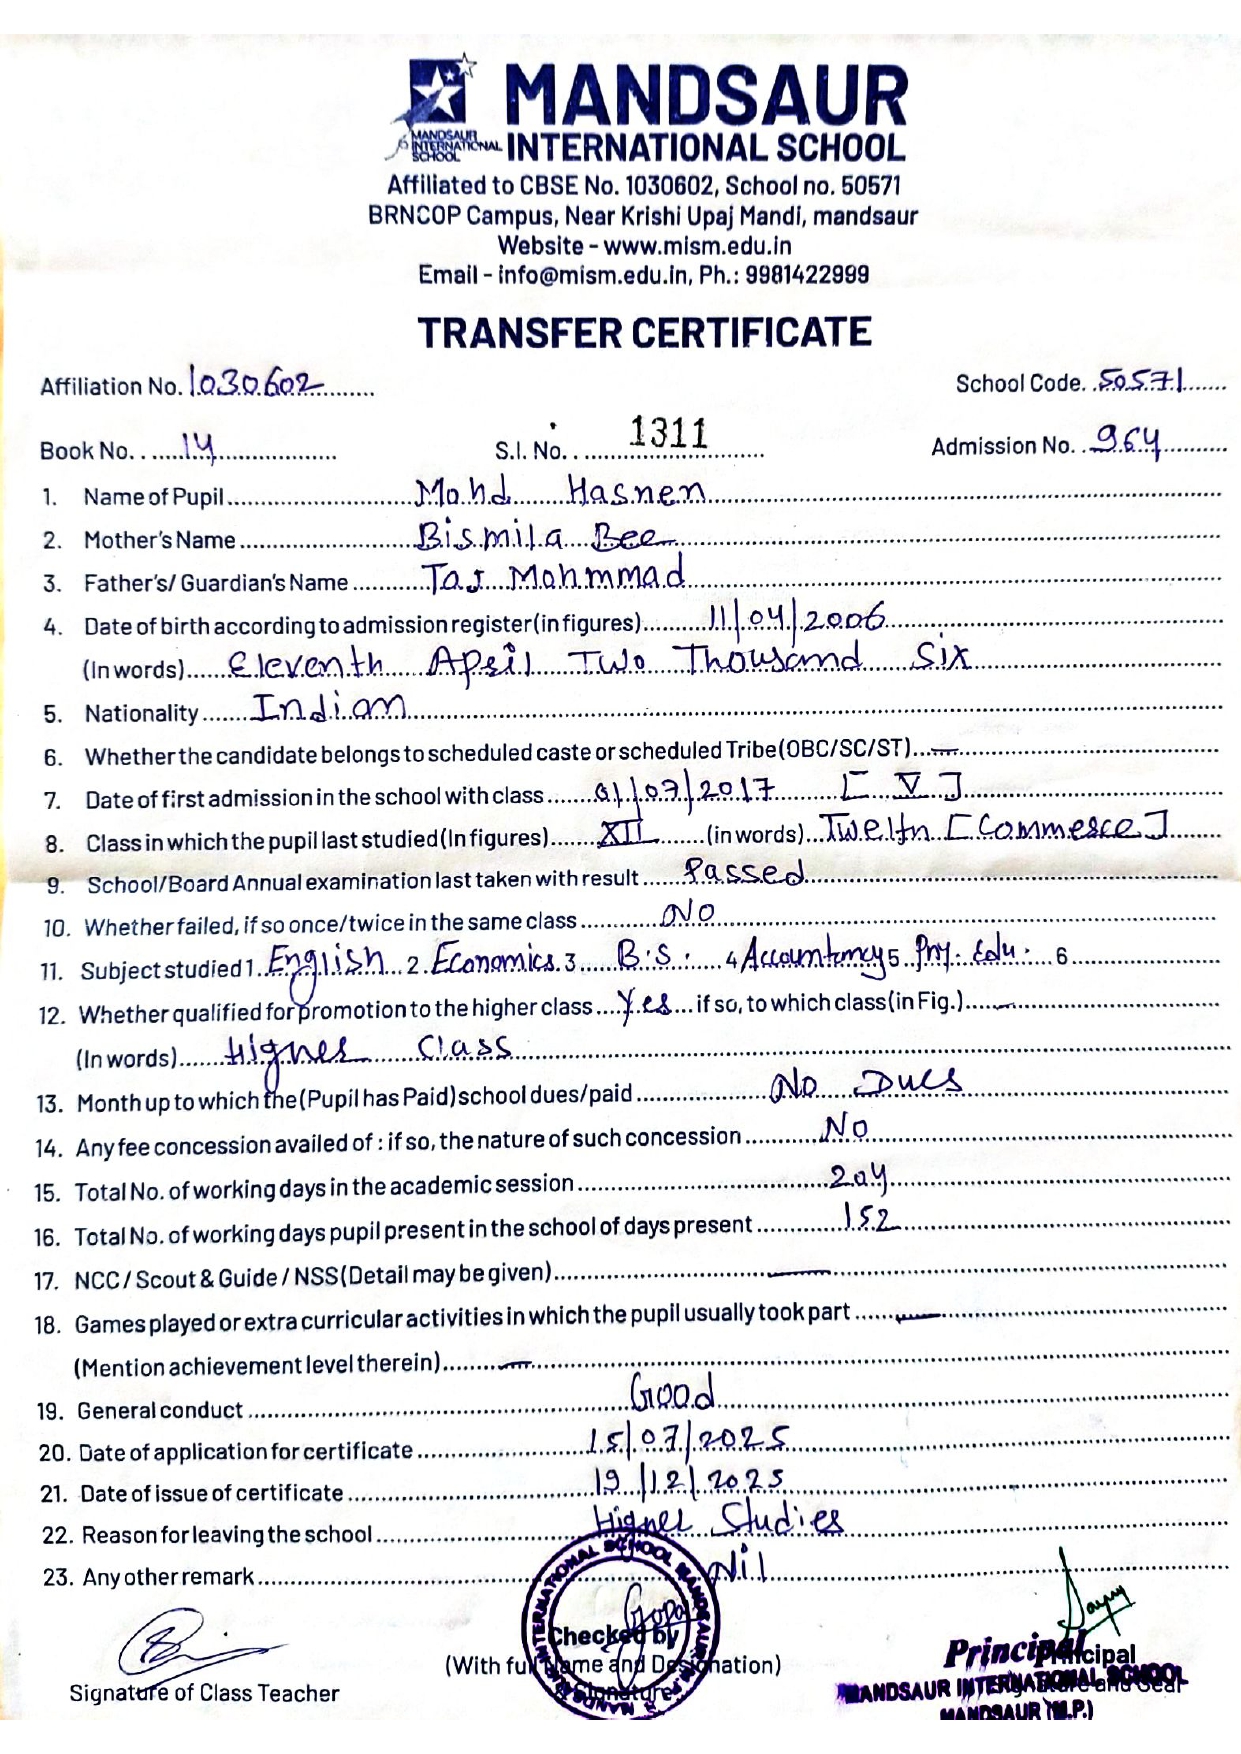 MANDSAUR
INTERNATIONAL SCHOOL
MANDSAUR INTERNATIONAL SCHOOL
Affiliated to CBSE No. 1030602, School no. 50571
BRNCOP Campus, Near Krishi Upaj Mandi, mandsaur
Website - www.mism.edu.in
Email - info@mism.edu.in, Ph.: 9981422999
TRANSFER CERTIFICATE
Affiliation No. 1030602 School Code. 50571
Book No. 14 S.I. No. 1311 Admission No. 964
1. Name of Pupil Mohd Hasnen
2. Mother's Name Bismila Bee
3. Father's/ Guardian's Name Taj Mohmmad
4. Date of birth according to admission register(in figures) 11/04/2006
(In words) Eleventh April Two Thousand Six
5. Nationality Indian
6. Whether the candidate belongs to scheduled caste or scheduled Tribe(OBC/SC/ST) —
7. Date of first admission in the school with class 01/07/2017 [V]
8. Class in which the pupil last studied(In figures) XII (in words) Twelth [Commerce]
9. School/Board Annual examination last taken with result Passed
10. Whether failed, if so once/twice in the same class No
11. Subject studied 1 English 2 Economics 3 B.S. 4 Accountancy 5 Phy. Edu. 6
12. Whether qualified for promotion to the higher class Yes if so, to which class(in Fig.) —
(In words) Higher Class
13. Month up to which the (Pupil has Paid) school dues/paid No Dues
14. Any fee concession availed of : if so, the nature of such concession No
15. Total No. of working days in the academic session 204
16. Total No. of working days pupil present in the school of days present 152
17. NCC / Scout & Guide / NSS(Detail may be given) —
18. Games played or extra curricular activities in which the pupil usually took part —
(Mention achievement level therein) —
19. General conduct Good
20. Date of application for certificate 15/07/2025
21. Date of issue of certificate 19/12/2025
22. Reason for leaving the school Higher Studies
23. Any other remark Nil
Checked by
Principal
(With full Name and Designation)
Signature of Class Teacher
Signature
MANDSAUR INTERNATIONAL SCHOOL
MANDSAUR (M.P.)